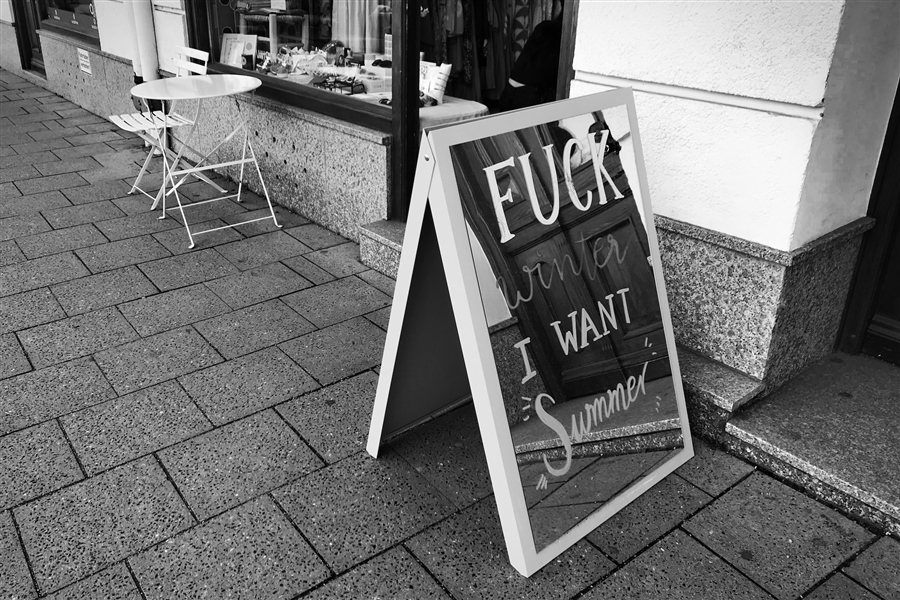 FUCK
winter
I WANT
Summer